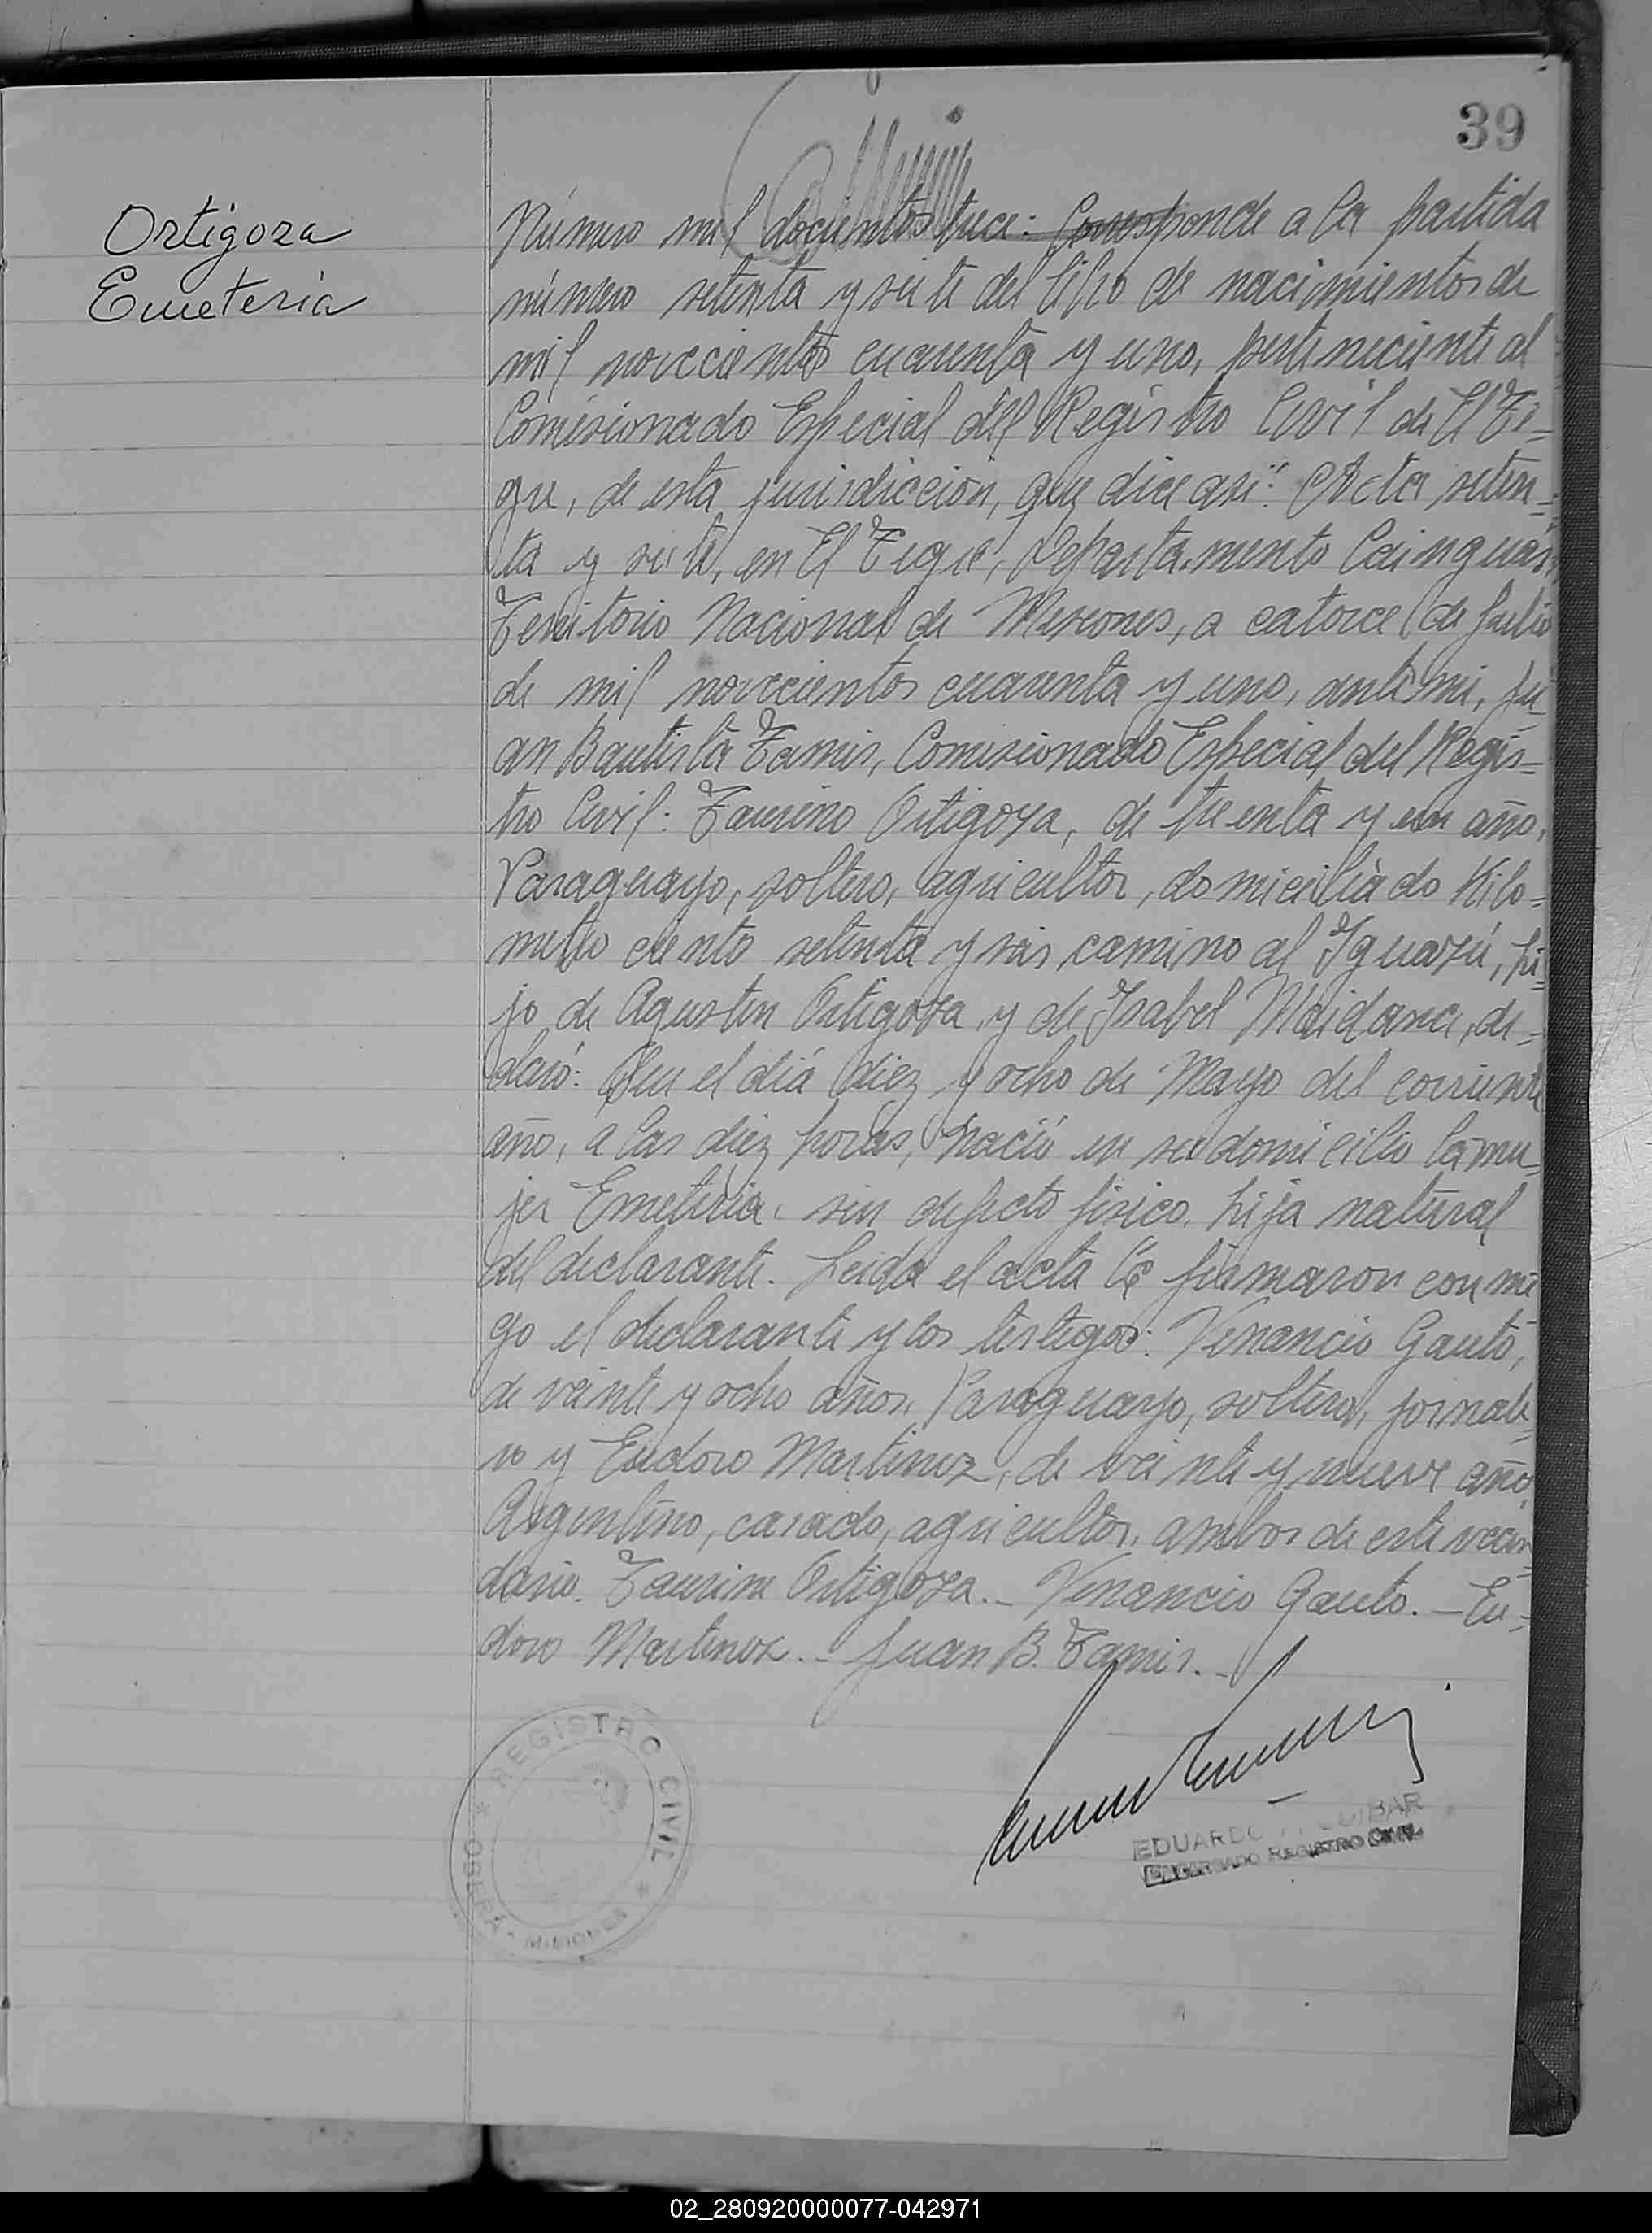 39
Ortigoza
Emeteria
Número mil docientos trece: Corresponde a la partida
número setenta y siete del libro de nacimientos de
mil novecientos cuarenta y uno, perteneciente al
Comisionado Especial del Registro Civil de El Ti-
gre, de esta jurisdicción, que dice así: "Acta seten-
ta y siete, en El Tigre, Departamento Cainguás,
Territorio Nacional de Misiones, a catorce de Julio
de mil novecientos cuarenta y uno, ante mi, Ju-
an Bautista Tamis, Comisionado Especial del Regis-
tro Civil: Taurino Ortigoza, de treinta y un año,
Paraguayo, soltero, agricultor, domiciliado Kilo-
metro ciento setenta y seis camino al Iguazú, hi-
jo de Agustin Ortigoza y de Isabel Maidana, de-
claró: Que el día diez y ocho de Mayo del corriente
año, a las diez horas, nació en su domicilio la mu-
jer Emeteria, sin defecto fisico, hija natural
del declarante. Leida el acta la firmaron conmi
go el declarante y los testigos: Venancio Gauto,
de veinte y ocho años, Paraguayo, soltero, jornale-
ro y Eudoro Martinez, de veinte y nueve año,
Argentino, casado, agricultor, ambos de este vecin-
dario. Taurino Ortigoza.- Venancio Gauto.- Eu-
doro Martinez.- Juan B. Tamis.-
REGISTRO CIVIL
OBERÁ - MISIONES
EDUARDO
ENCARGADO REGISTRO CIVIL
02_280920000077-042971